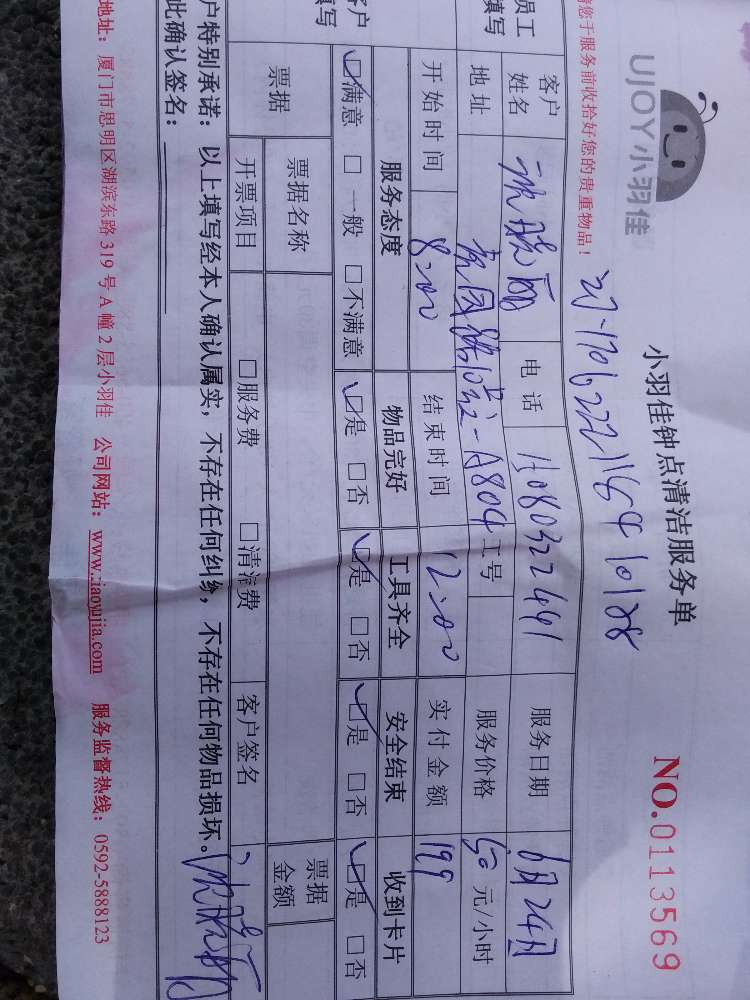 UJOY小羽佳
小羽佳钟点清洁服务单
NO.0113569
请您于服务前收拾好您的贵重物品！
员工填写
客户姓名 电话 服务日期 6月24日
地址 A804 工号 服务价格 50元/小时
开始时间 8:00 结束时间 12:00 实付金额 199
客户填写
服务态度 物品完好 工具齐全 安全结束 收到卡片
☑满意 □一般 □不满意 ☑是 □否 ☑是 □否 ☑是 □否 ☑是 □否
票据 票据名称 票据金额
开票项目 □服务费 □清洁费 客户签名
客户特别承诺：以上填写经本人确认属实，不存在任何纠纷，不存在任何物品损坏。
此确认签名：
地址：厦门市思明区湖滨东路319号A幢2层小羽佳 公司网站：www.xiaoyujia.com 服务监督热线：0592-5888123